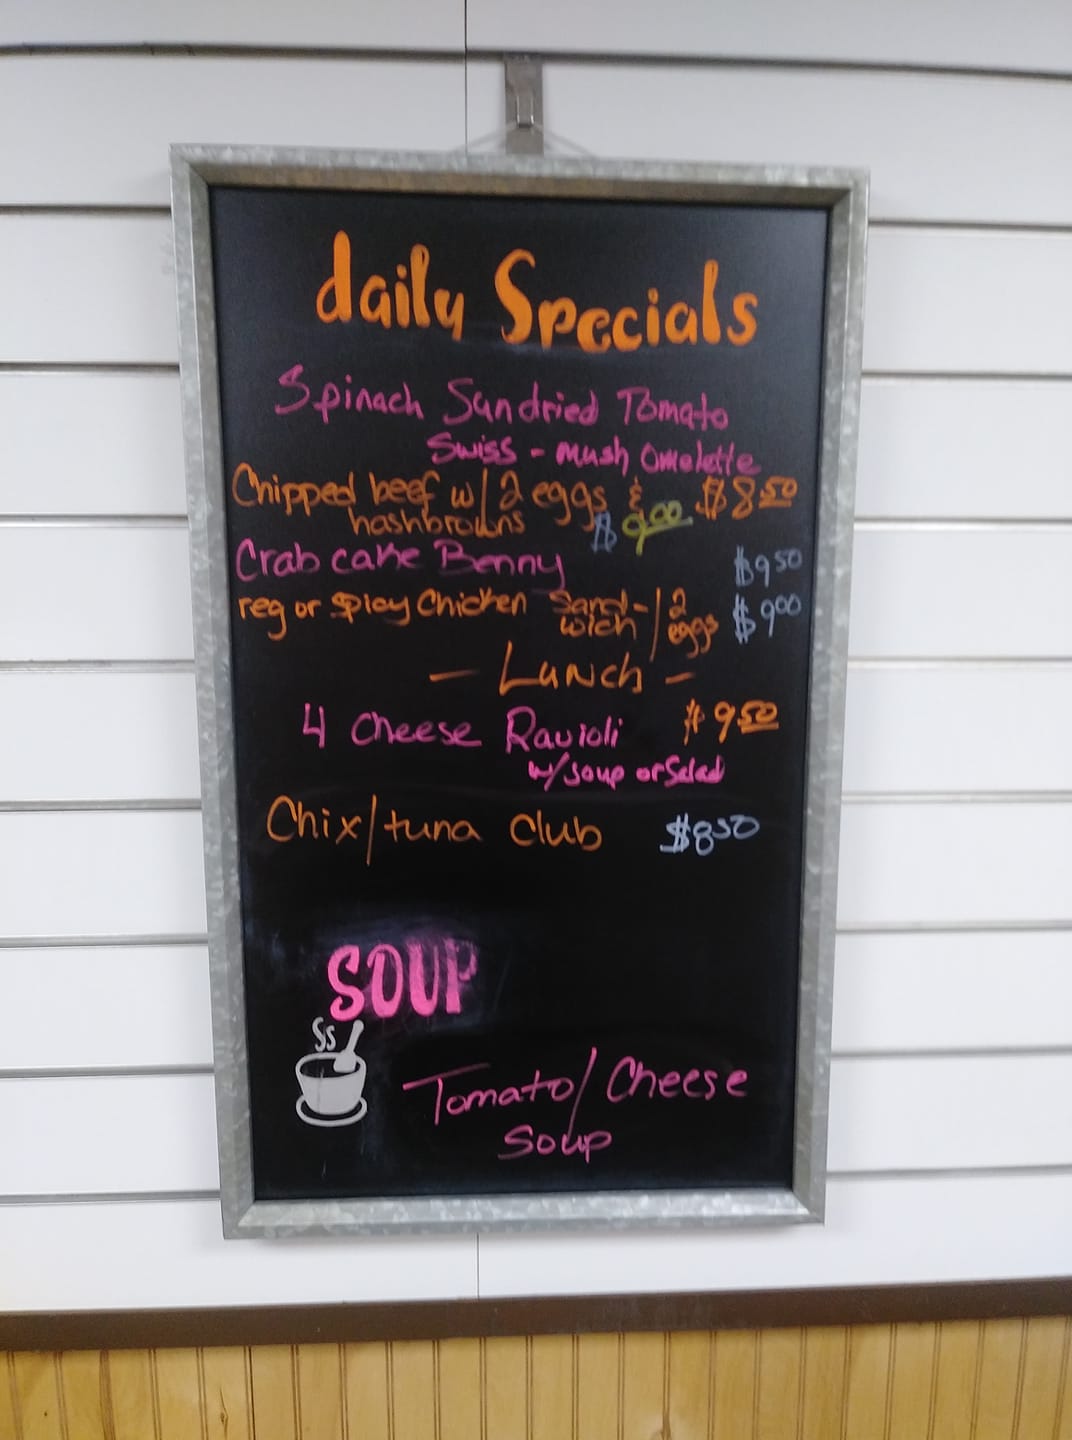 daily Specials
Spinach Sundried Tomato
Swiss - mush Omelette
Chipped beef w/ 2 eggs & $8.50
hashbrowns $9.00
Crab cake Benny $9.50
reg or Spicy Chicken Sand-wich / 2 eggs $9.00
- Lunch -
4 Cheese Ravioli $9.50
w/ soup or Salad
Chix/tuna Club $8.50
SOUP
Tomato/Cheese
Soup